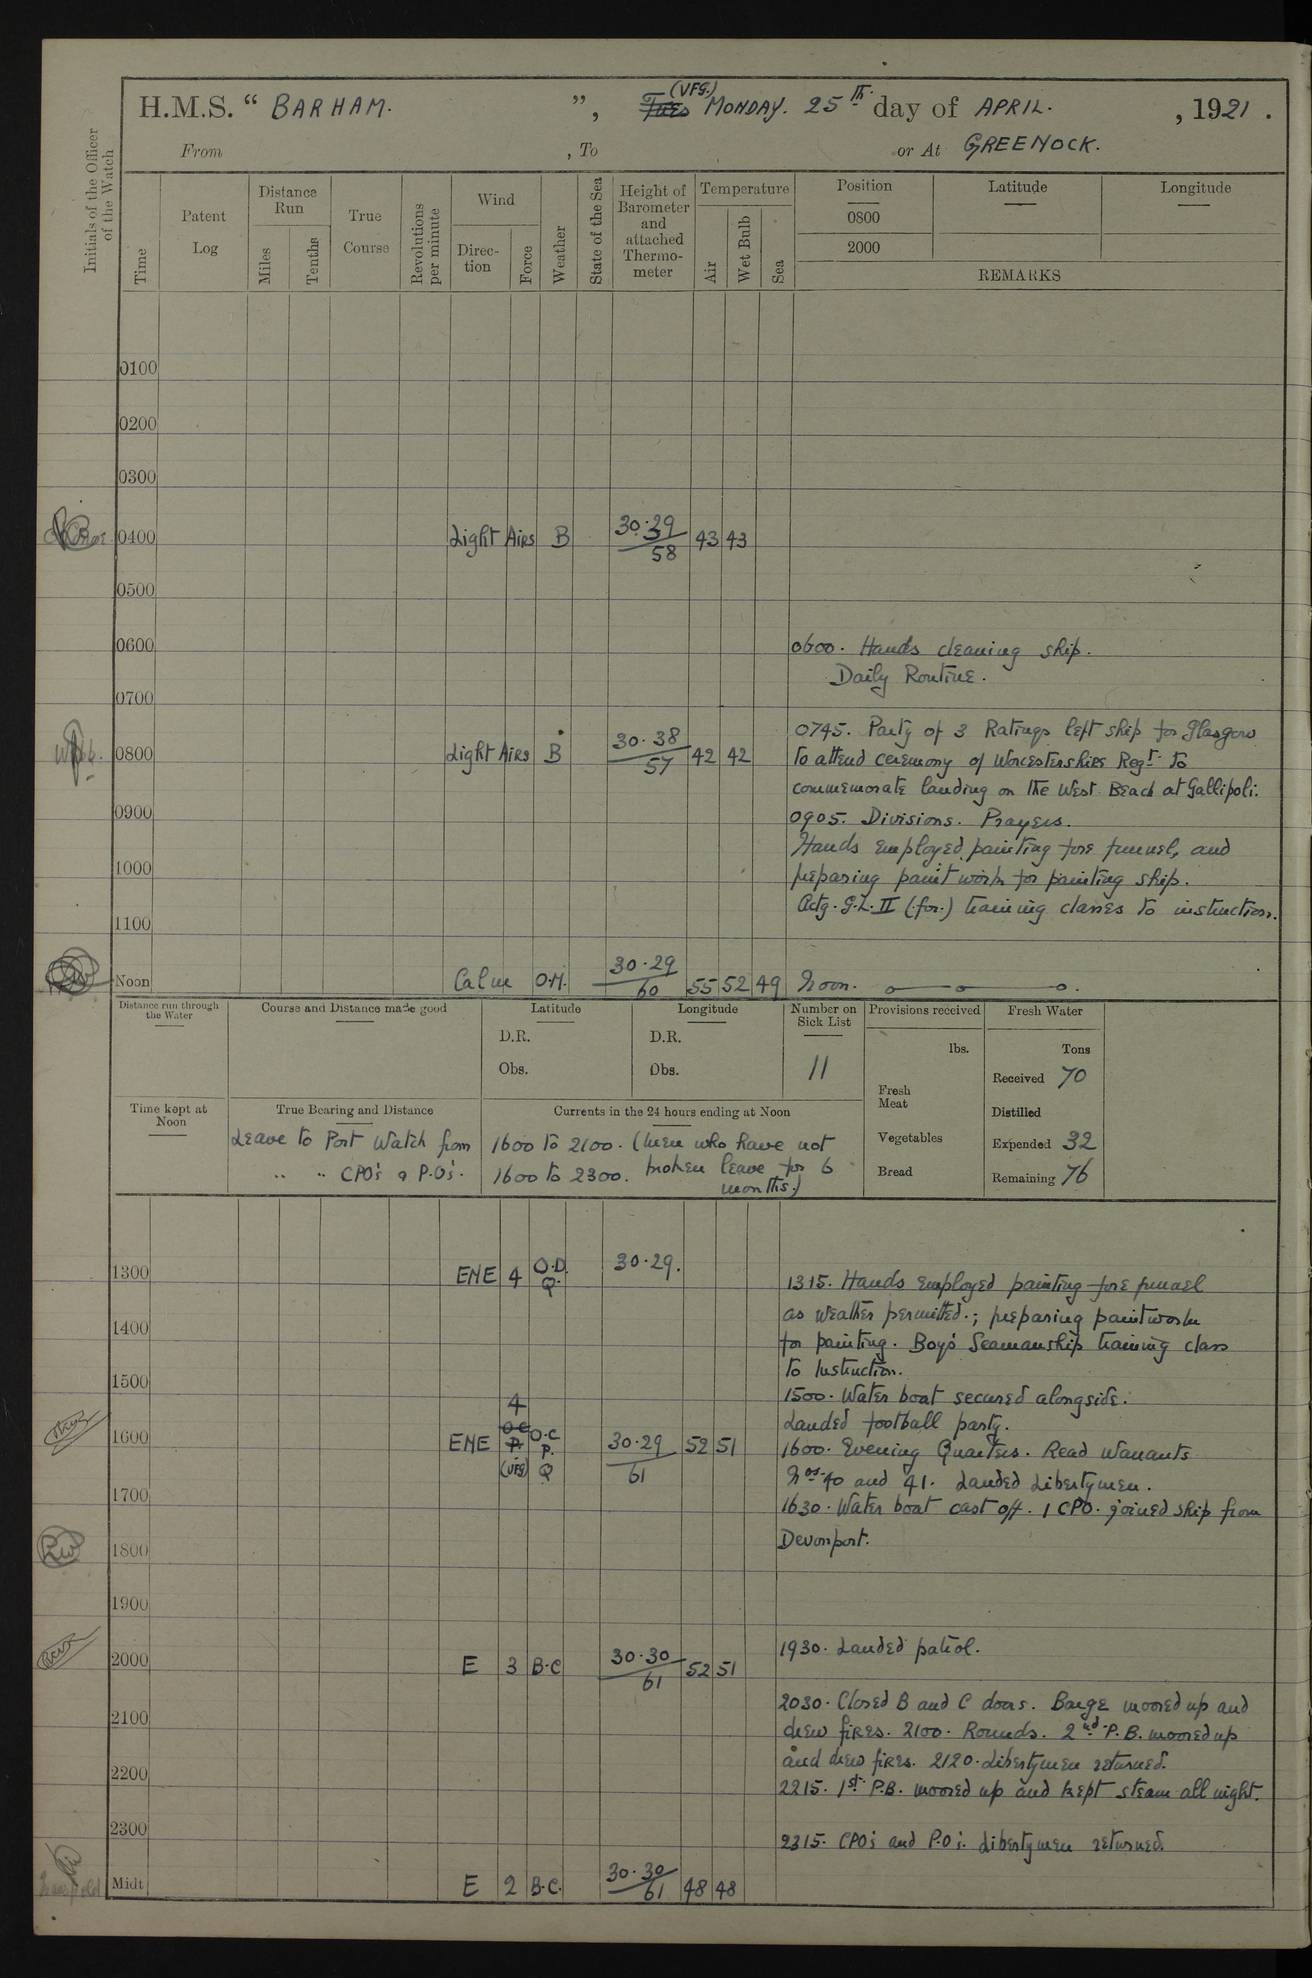 H.M.S. " BARHAM. ", (VFG.) MONDAY. 25th. day of APRIL. , 1921 .
From , To or At GREENOCK.
Initials of the Officer of the Watch
Time
Patent Log
Distance Run
Miles
Tenths
True Course
Revolutions per minute
Wind
Direction
Force
Weather
State of the Sea
Height of Barometer and attached Thermometer
Temperature
Air
Wet Bulb
Sea
Position Latitude Longitude
0800
2000
REMARKS
0100
0200
0300
0400 Light Airs B 30.39 58 43 43
0500
0600 0600. Hands cleaning ship.
Daily Routine.
0700
0745. Party of 3 Ratings left ship for Glasgow
0800 Light Airs B 30.38 57 42 42 to attend ceremony of Worcestershire Regt. to
commemorate landing on the West Beach at Gallipoli.
0900 0905. Divisions. Prayers.
Hands employed painting fore funnel, and
1000 preparing paint work for painting ship.
Actg. G.L. II (for.) training classes to instruction.
1100
Noon Calm O.M. 30.29 60 55 52 49 Noon.
Distance run through the Water
Course and Distance made good
Latitude
D.R.
Obs.
Longitude
D.R.
Obs.
Number on Sick List
11
Provisions received
lbs.
Fresh Meat
Vegetables
Bread
Fresh Water
Tons
Received 70
Distilled
Expended 32
Remaining 76
Time kept at Noon
True Bearing and Distance
Currents in the 24 hours ending at Noon
Leave to Port Watch from 1600 to 2100. (Men who have not
" " CPO's & P.O's. 1600 to 2300. broken leave for 6
months.)
1300 ENE 4 O.D. Q. 30.29.
1315. Hands employed painting fore funnel
1400 as weather permitted.; preparing paintwork
for painting. Boys Seamanship training class
to Instruction.
1500 1500. Water boat secured alongside.
4
Landed football party.
1600 ENE O.C. P. (VFG) O.C. P. Q 30.29 61 52 51 1600. Evening Quarters. Read Warrants
Nos. 40 and 41. Landed Libertymen.
1700 1630. Water boat cast off. 1 CPO. joined ship from
Devonport.
1800
1900
1930. Landed patrol.
2000 E 3 B.C 30.30 61 52 51
2030. Closed B and C doors. Barge moored up and
2100 drew fires. 2100. Rounds. 2nd P.B. moored up
and drew fires. 2120. Libertymen returned.
2200 2215. 1st P.B. moored up and kept steam all night.
2300 2315. CPO's and P.O's. Libertymen returned.
Midt E 2 B.C. 30.30 61 48 48